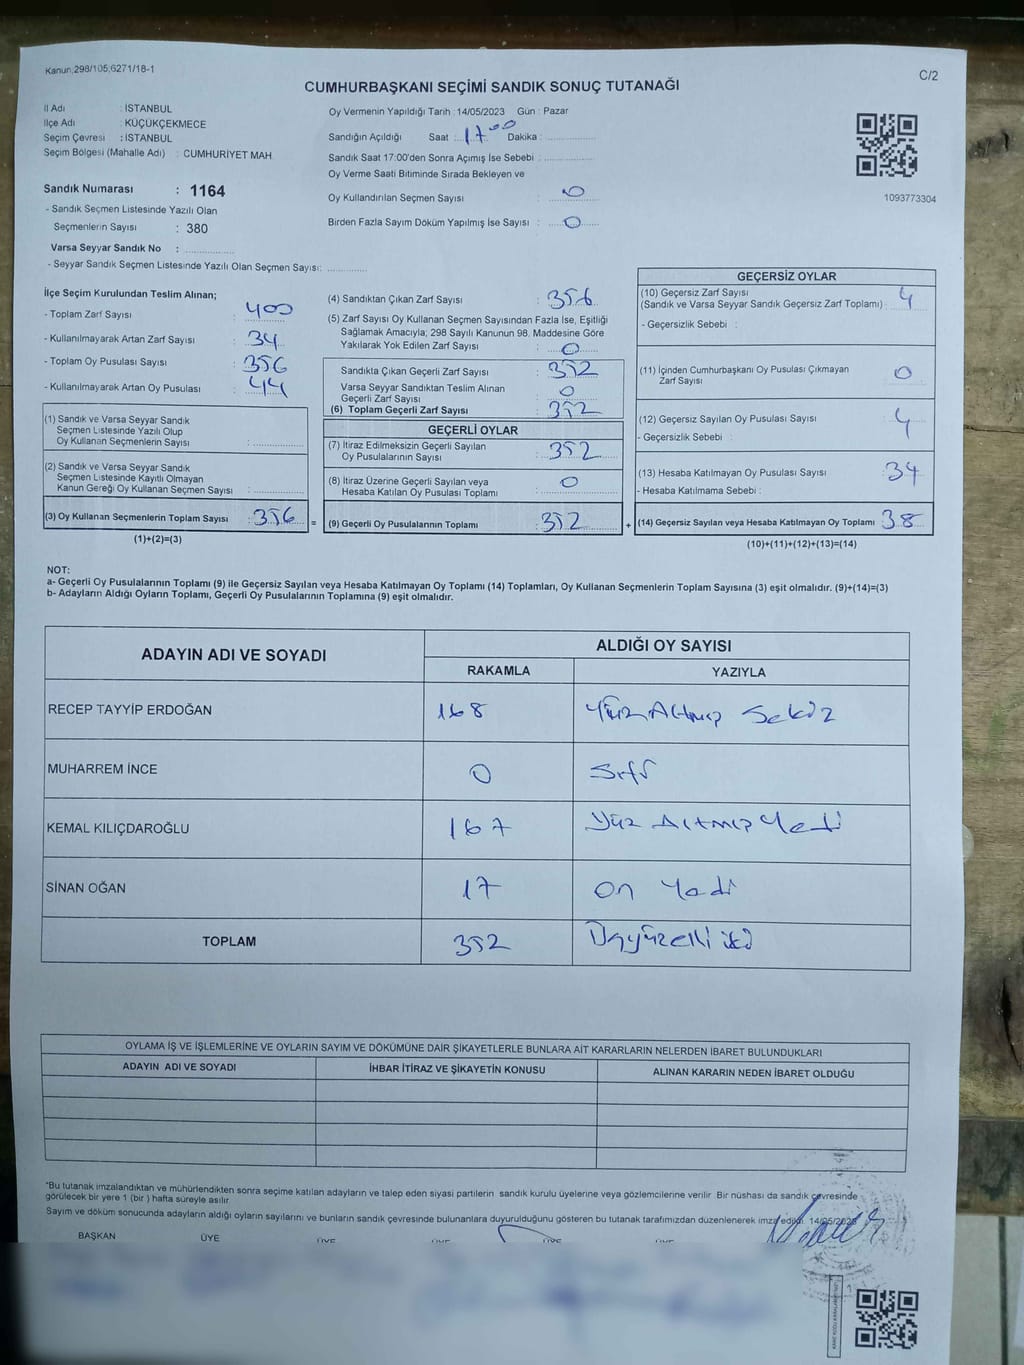 Kanun,298/105;6271/18-1
C/2
CUMHURBAŞKANI SEÇİMİ SANDIK SONUÇ TUTANAĞI
İl Adı : İSTANBUL
İlçe Adı : KÜÇÜKÇEKMECE
Seçim Çevresi : İSTANBUL
Seçim Bölgesi (Mahalle Adı) : CUMHURİYET MAH.
Sandık Numarası : 1164
- Sandık Seçmen Listesinde Yazılı Olan
Seçmenlerin Sayısı : 380
Varsa Seyyar Sandık No :
- Seyyar Sandık Seçmen Listesinde Yazılı Olan Seçmen Sayısı:
Oy Vermenin Yapıldığı Tarih : 14/05/2023 Gün : Pazar
Sandığın Açıldığı Saat : 17 00 Dakika :
Sandık Saat 17:00'den Sonra Açımış İse Sebebi :
Oy Verme Saati Bitiminde Sırada Bekleyen ve
Oy Kullandırılan Seçmen Sayısı : 0
Birden Fazla Sayım Döküm Yapılmış İse Sayısı : 0
1093773304
İlçe Seçim Kurulundan Teslim Alınan;
- Toplam Zarf Sayısı : 400
- Kullanılmayarak Artan Zarf Sayısı : 34
- Toplam Oy Pusulası Sayısı : 356
- Kullanılmayarak Artan Oy Pusulası : 44
(1) Sandık ve Varsa Seyyar Sandık
Seçmen Listesinde Yazılı Olup
Oy Kullanan Seçmenlerin Sayısı :
(2) Sandık ve Varsa Seyyar Sandık
Seçmen Listesinde Kayıtlı Olmayan
Kanun Gereği Oy Kullanan Seçmen Sayısı :
(3) Oy Kullanan Seçmenlerin Toplam Sayısı : 356
(1)+(2)=(3)
=
(4) Sandıktan Çıkan Zarf Sayısı : 356
(5) Zarf Sayısı Oy Kullanan Seçmen Sayısından Fazla İse, Eşitliği
Sağlamak Amacıyla; 298 Sayılı Kanunun 98. Maddesine Göre
Yakılarak Yok Edilen Zarf Sayısı : 0
Sandıkta Çıkan Geçerli Zarf Sayısı : 352
Varsa Seyyar Sandıktan Teslim Alınan
Geçerli Zarf Sayısı : 0
(6) Toplam Geçerli Zarf Sayısı : 352
GEÇERLİ OYLAR
(7) İtiraz Edilmeksizin Geçerli Sayılan
Oy Pusulalarının Sayısı : 352
(8) İtiraz Üzerine Geçerli Sayılan veya
Hesaba Katılan Oy Pusulası Toplamı : 0
(9) Geçerli Oy Pusulalarının Toplamı : 352
+
GEÇERSİZ OYLAR
(10) Geçersiz Zarf Sayısı
(Sandık ve Varsa Seyyar Sandık Geçersiz Zarf Toplamı) : 4
- Geçersizlik Sebebi :
(11) İçinden Cumhurbaşkanı Oy Pusulası Çıkmayan
Zarf Sayısı 0
(12) Geçersiz Sayılan Oy Pusulası Sayısı 4
- Geçersizlik Sebebi :
(13) Hesaba Katılmayan Oy Pusulası Sayısı 34
- Hesaba Katılmama Sebebi :
(14) Geçersiz Sayılan veya Hesaba Katılmayan Oy Toplamı : 38
(10)+(11)+(12)+(13)=(14)
NOT:
a- Geçerli Oy Pusulalarının Toplamı (9) ile Geçersiz Sayılan veya Hesaba Katılmayan Oy Toplamı (14) Toplamları, Oy Kullanan Seçmenlerin Toplam Sayısına (3) eşit olmalıdır. (9)+(14)=(3)
b- Adayların Aldığı Oyların Toplamı, Geçerli Oy Pusulalarının Toplamına (9) eşit olmalıdır.
ADAYIN ADI VE SOYADI
ALDIĞI OY SAYISI
RAKAMLA YAZIYLA
RECEP TAYYİP ERDOĞAN 168 Yüz Altmış Sekiz
MUHARREM İNCE 0 Sıfır
KEMAL KILIÇDAROĞLU 167 Yüz Altmış Yedi
SİNAN OĞAN 17 On Yedi
TOPLAM 352 Üçyüzelli iki
OYLAMA İŞ VE İŞLEMLERİNE VE OYLARIN SAYIM VE DÖKÜMÜNE DAİR ŞİKAYETLERLE BUNLARA AİT KARARLARIN NELERDEN İBARET BULUNDUKLARI
ADAYIN ADI VE SOYADI İHBAR İTİRAZ VE ŞİKAYETİN KONUSU ALINAN KARARIN NEDEN İBARET OLDUĞU
*Bu tutanak imzalandıktan ve mühürlendikten sonra seçime katılan adayların ve talep eden siyasi partilerin sandık kurulu üyelerine veya gözlemcilerine verilir. Bir nüshası da sandık çevresinde
görülecek bir yere 1 (bir ) hafta süreyle asılır.
Sayım ve döküm sonucunda adayların aldığı oyların sayılarını ve bunların sandık çevresinde bulunanlara duyurulduğunu gösteren bu tutanak tarafımızdan düzenlenerek imza edildi. 14/05/2023
BAŞKAN ÜYE ÜYE ÜYE ÜYE ÜYE